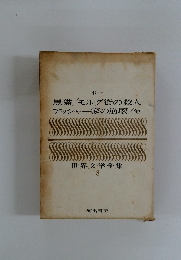 ポー
黒猫／モルグ街の殺人
アッシャー家の崩壊／他
世界文学全集